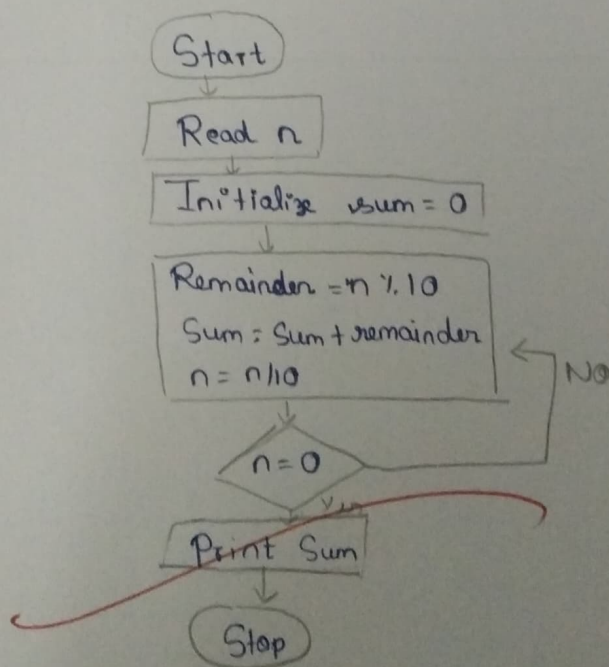 Start
Read n
Initialize sum = 0
Remainder = n % 10
Sum = Sum + remainder
n = n/10
NO
n = 0
Yes
Print Sum
Stop